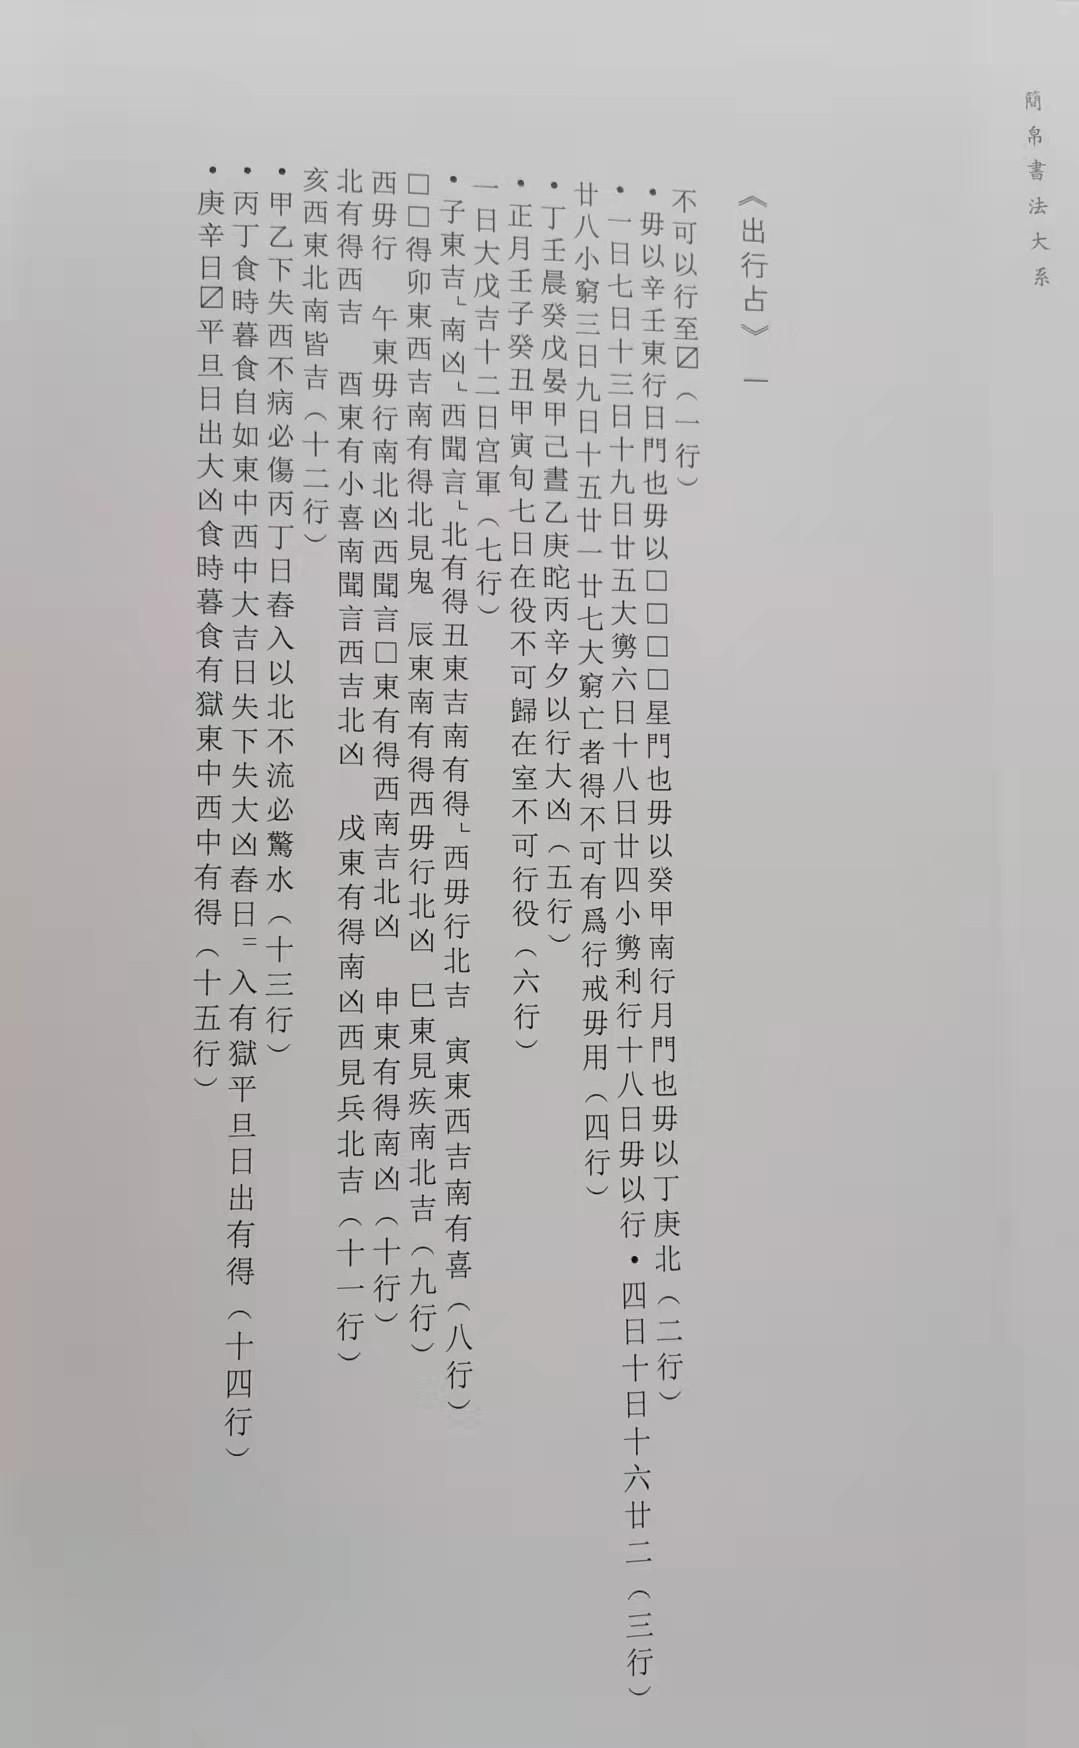 簡帛書法大系
《出行占》 一
不可以行至〼（一行）
•毋以辛壬東行日門也毋以□□□□星門也毋以癸甲南行月門也毋以丁庚北（二行）
•一日七日十三日十九日廿五大勶六日十八日廿四小勶利行十八日毋以行•四日十日十六廿二（三行）
廿八小窮三日九日十五廿一廿七大窮亡者得不可有爲行戒毋用（四行）
•丁壬晨癸戊晏甲己晝乙庚昳丙辛夕以行大凶（五行）
•正月壬子癸丑甲寅旬七日在役不可歸在室不可行役（六行）
一日大戊吉十二日宫軍（七行）
•子東吉∟南凶∟西聞言∟北有得丑東吉南有得∟西毋行北吉　寅東西吉南有喜（八行）
□□得卯東西吉南有得北見鬼　辰東南有得西毋行北凶　巳東見疾南北吉（九行）
西毋行　午東毋行南北凶西聞言□東有得西南吉北凶　申東有得南凶（十行）
北有得西吉　酉東有小喜南聞言西吉北凶　戌東有得南凶西見兵北吉（十一行）
亥西東北南皆吉（十二行）
•甲乙下失西不病必傷丙丁日舂入以北不流必驚水（十三行）
•丙丁食時暮食自如東中西中大吉日失下失大凶舂日＝入有獄平旦日出有得（十四行）
•庚辛日〼平旦日出大凶食時暮食有獄東中西中有得（十五行）